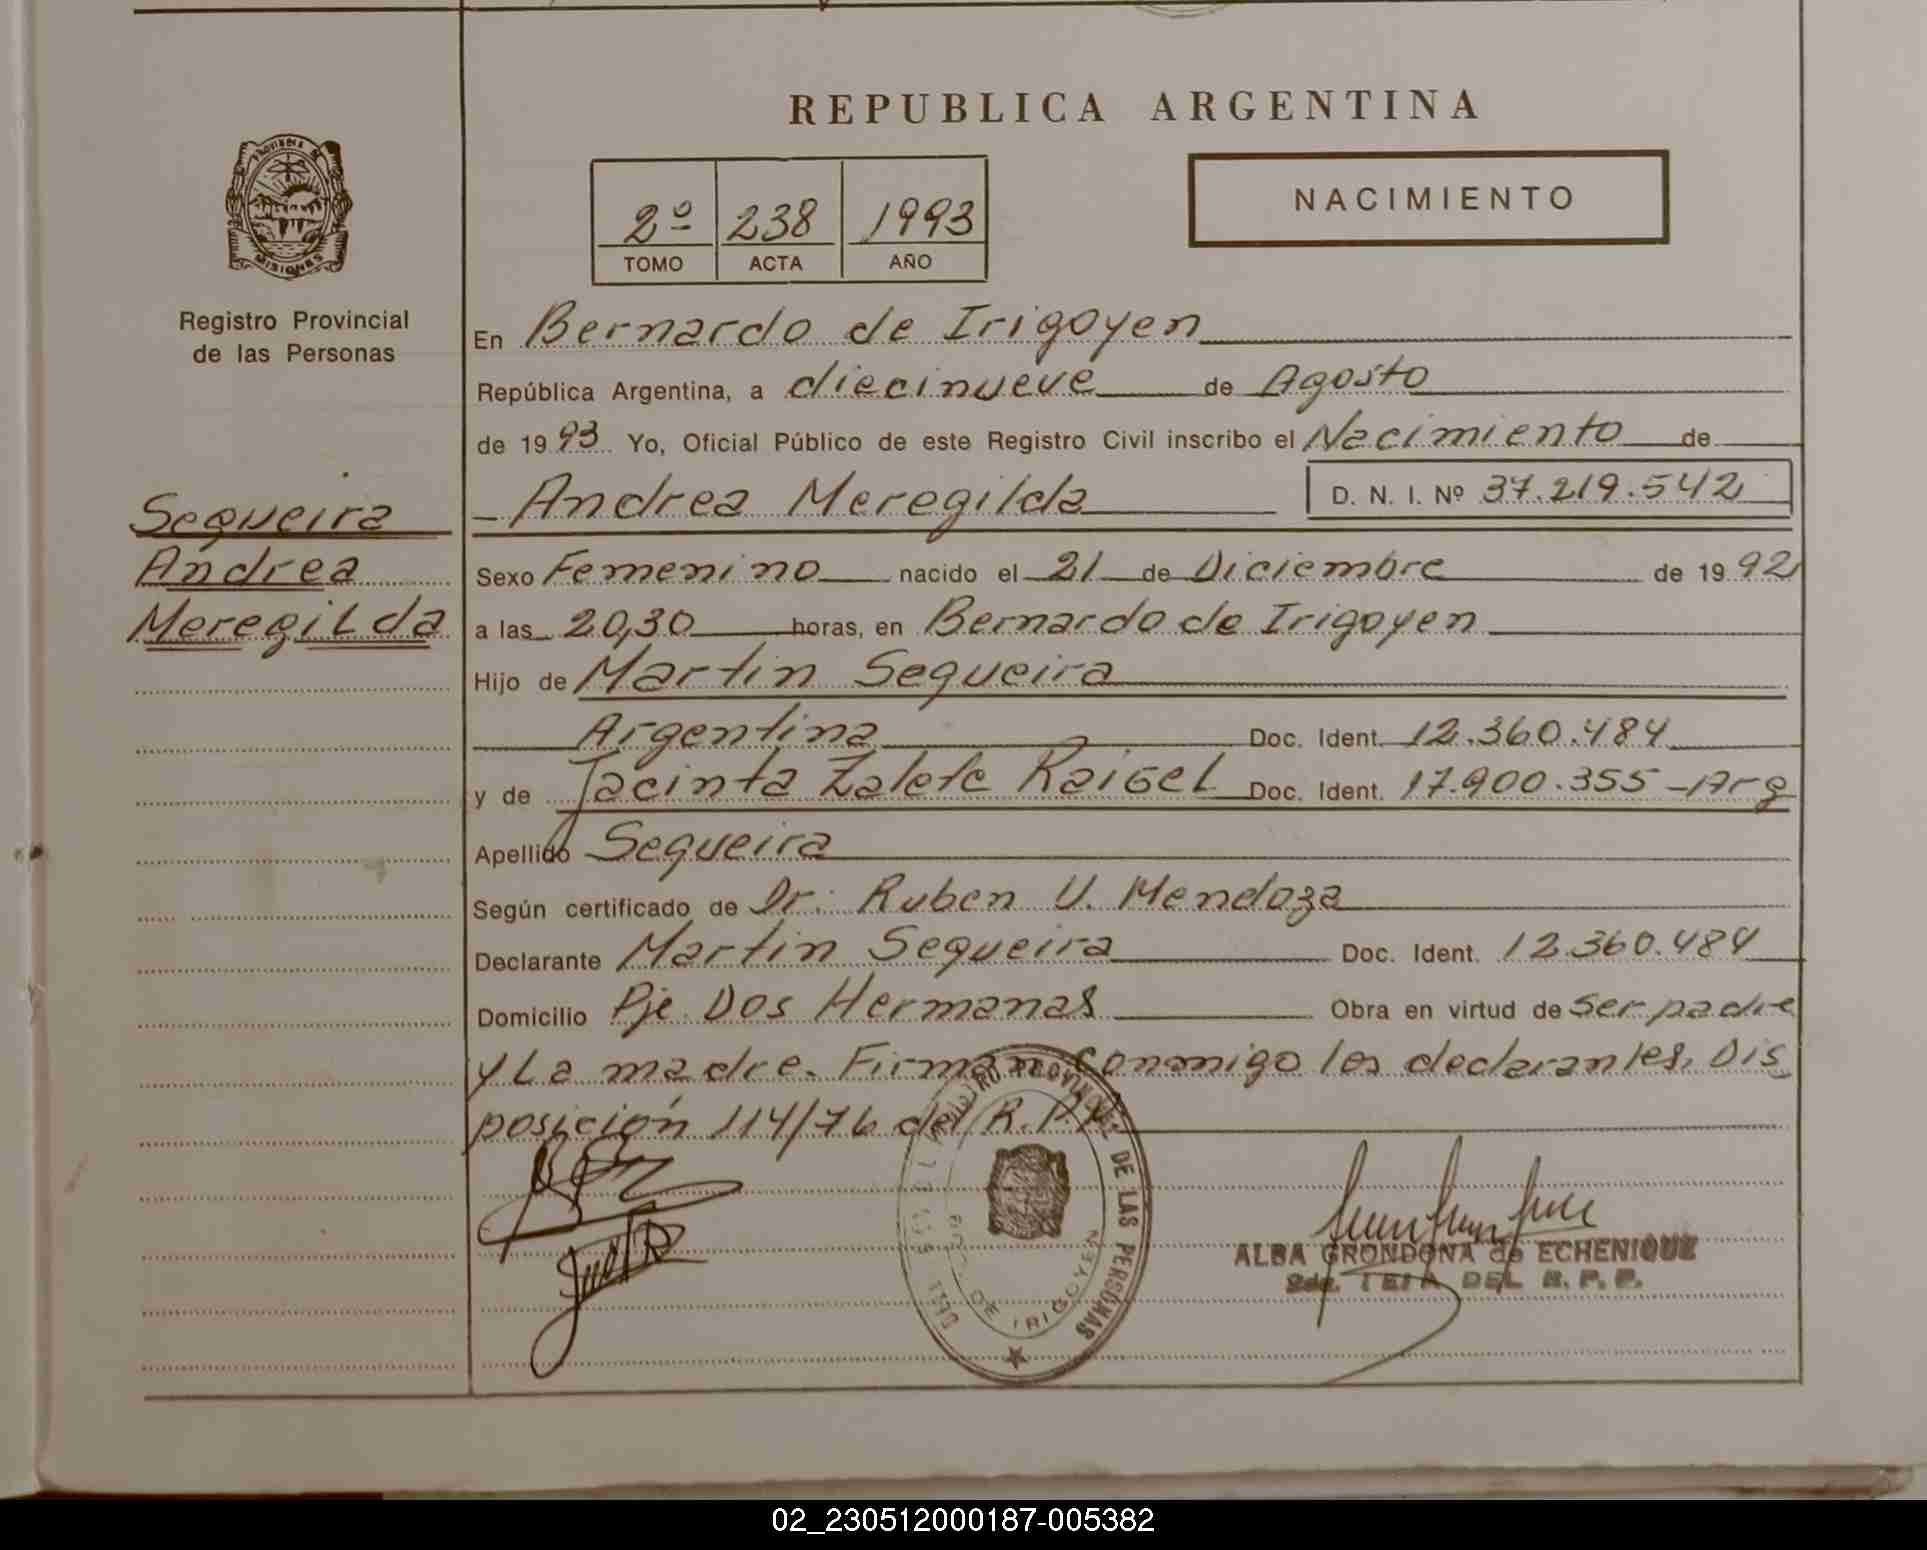 REPUBLICA ARGENTINA
PROVINCIA DE
MISIONES
Registro Provincial
de las Personas
2º 238 1993
TOMO ACTA AÑO
NACIMIENTO
En Bernardo de Irigoyen
República Argentina, a diecinueve de Agosto
de 1993 Yo, Oficial Público de este Registro Civil inscribo el Nacimiento de
Andrea Meregilda D. N. I. Nº 37.219.542
Sequeira
Andrea
Meregilda
Sexo Femenino nacido el 21 de Diciembre de 1992
a las 20,30 horas, en Bernardo de Irigoyen
Hijo de Martin Sequeira
Argentina Doc. Ident. 12.360.484
y de Jacinta Zalete Raigel Doc. Ident. 17.900.355 - Arg
Apellido Sequeira
Según certificado de Dr. Ruben U. Mendoza
Declarante Martin Sequeira Doc. Ident. 12.360.484
Domicilio Pje Dos Hermanas Obra en virtud de ser padre
y La madre. Firman conmigo los declarantes. Dis
posición 114/76 del R.P.P.
PROVINCIAL DE LAS PERSONAS
DE IRIGOYEN
ALBA GRONDONA de ECHENIQUE
DEL R. P. P.
02_230512000187-005382